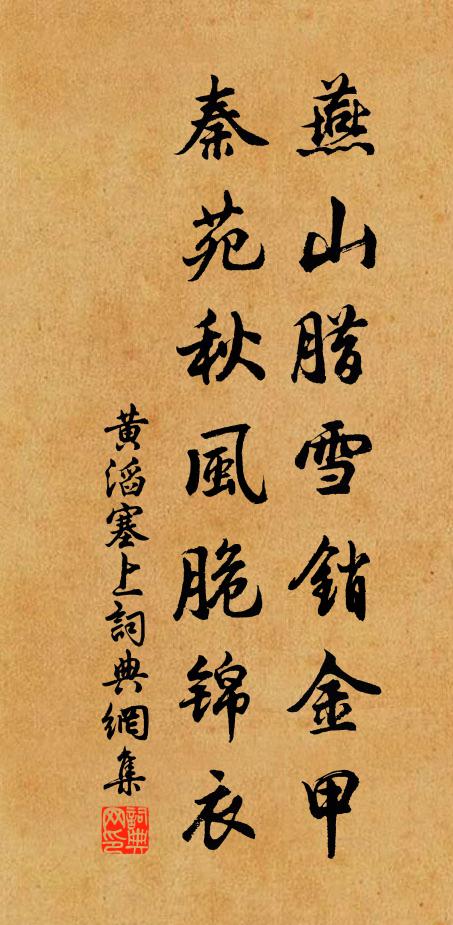 燕山腊雪銷金甲
秦苑秋風脆錦衣
黃滔塞上詞典網集
詞典網印